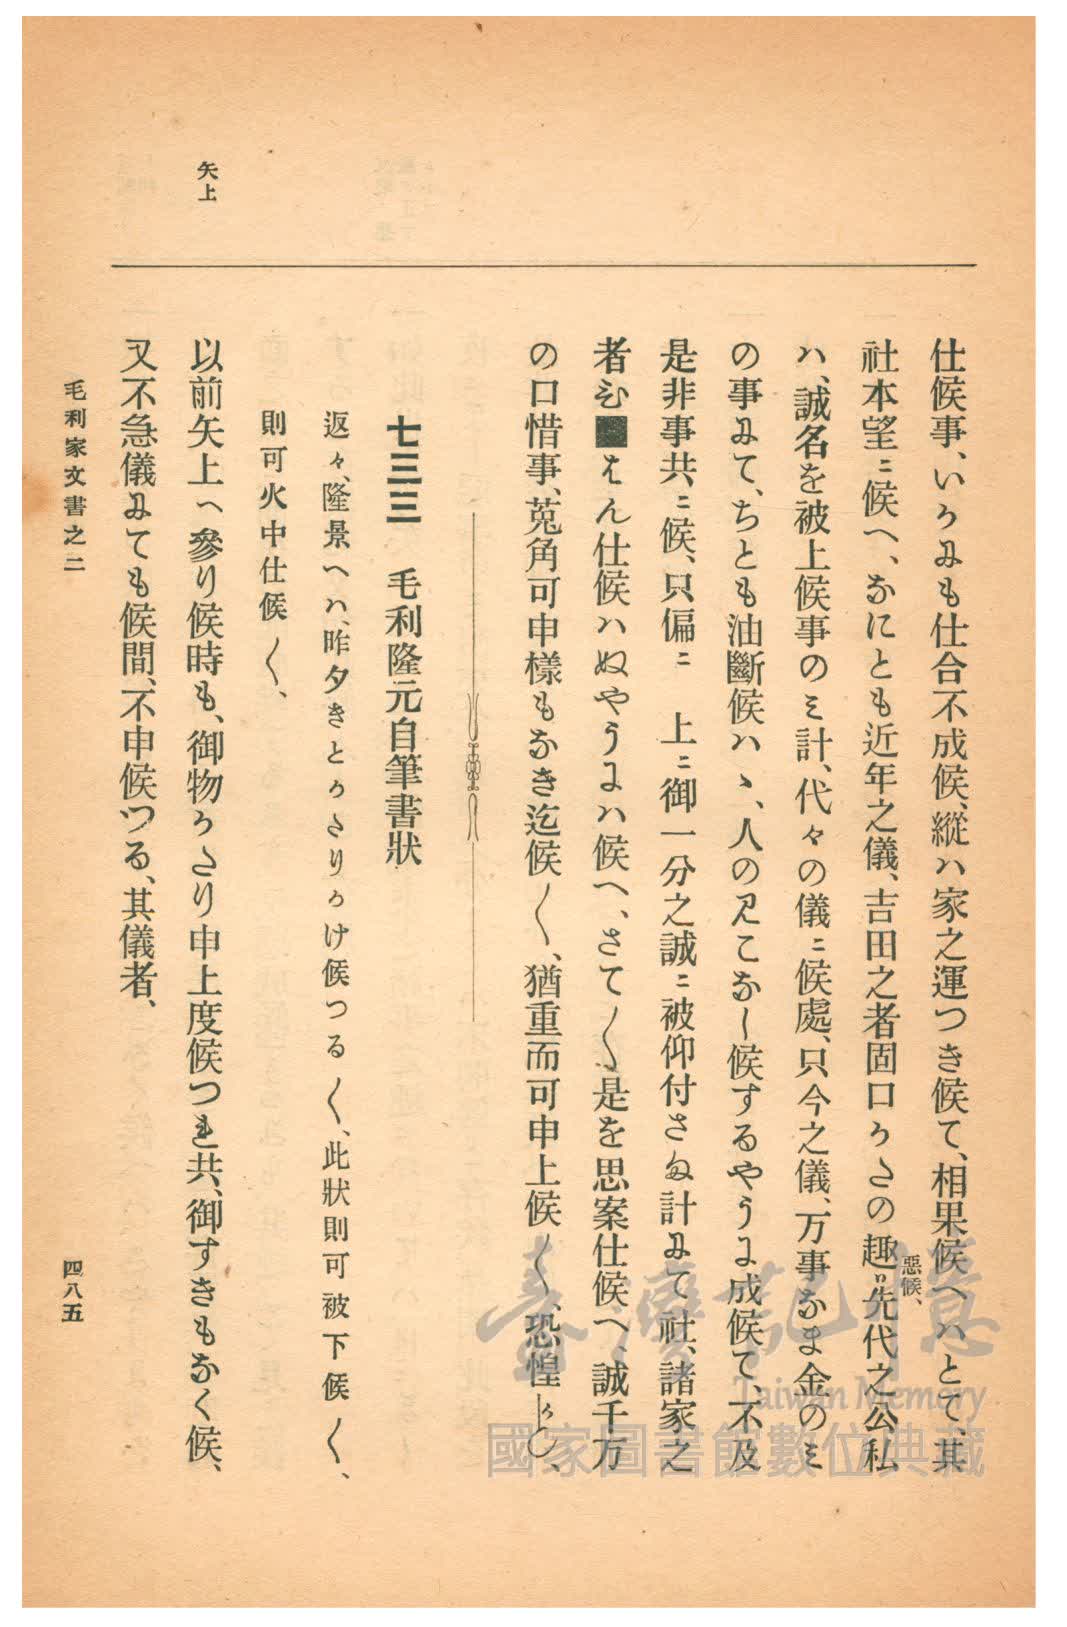 矢上
仕候事、いかにも仕合不成候、縱ハ家之運つき候て、相果候へハとて、其
社本望ニ候へ、なにとも近年之儀、吉田之者固口かたの趣ハ先代之公私
惡候、
ハ、誠名を被上候事のミ計、代々の儀ニ候處、只今之儀、万事なま金のミ
の事にて、ちとも油斷候ハヽ、人の見こなし候するやうに成候て、不及
是非事共ニ候、只偏ニ　上ニ御一分之誠ニ被仰付さぬ計にて社、諸家之
者も■はん仕候ハぬやうにハ候へ、さて〱是を思案仕候へ、誠千万
の口惜事、菟角可申樣もなき迄候〱、猶重而可申上候〱、恐惶かしく、
七三三　毛利隆元自筆書狀
返々、隆景へハ、昨夕きとかたりかけ候つる〱、此狀則可被下候〱、
則可火中仕候〱、
以前矢上へ參り候時も、御物かたり申上度候つれ共、御すきもなく候、
又不急儀にても候間、不申候つる、其儀者、
毛利家文書之二
四八五
臺灣記憶
Taiwan Memory
國家圖書館數位典藏